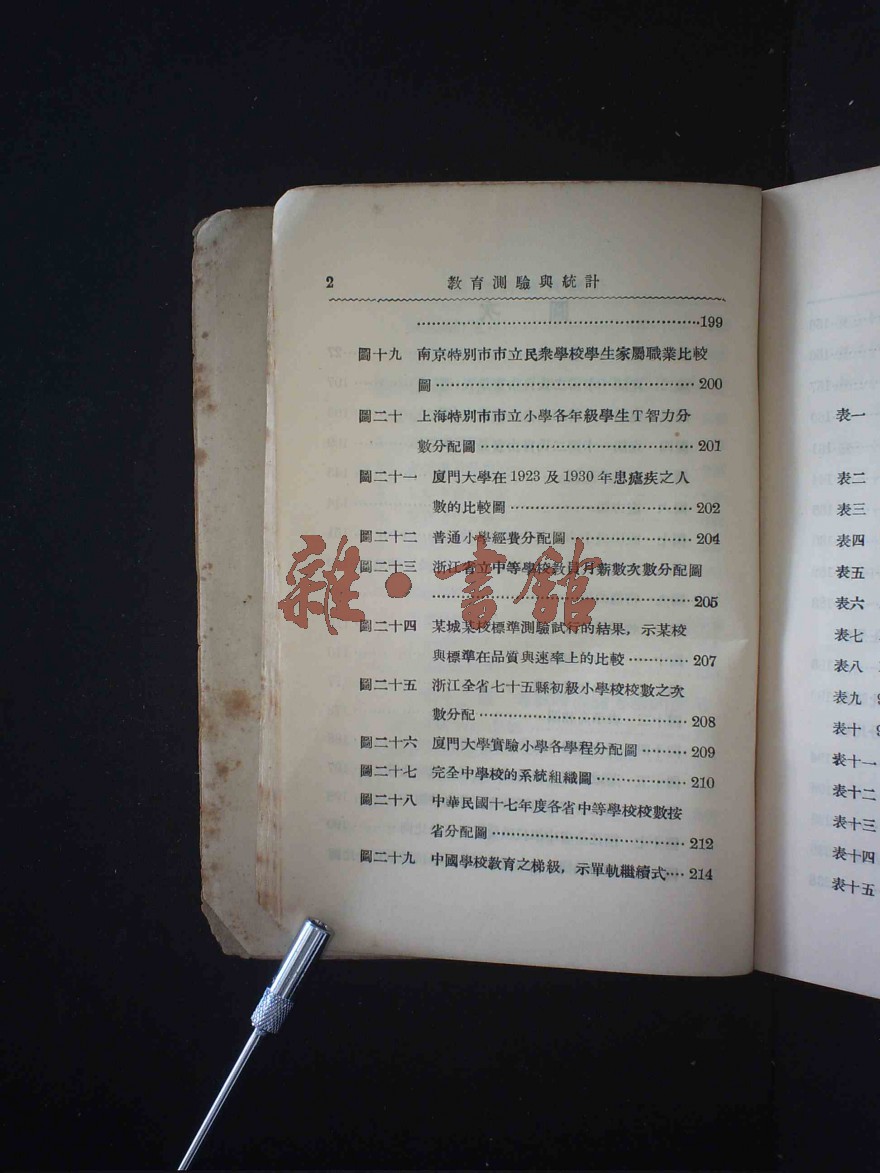 2 教育測驗與統計
……………………………………199
圖十九 南京特別市市立民衆學校學生家屬職業比較
圖……………………………………200
圖二十 上海特別市市立小學各年級學生T智力分
數分配圖……………………………201
圖二十一 廈門大學在1923及1930年患瘧疾之人
數的比較圖…………………………202
圖二十二 普通小學經費分配圖………………204
圖二十三 浙江省立中等學校教員月薪數次數分配圖
……………………………………205
圖二十四 某城某校標準測驗試行的結果，示某校
與標準在品質與速率上的比較…………207
圖二十五 浙江全省七十五縣初級小學校校數之次
數分配………………………………208
圖二十六 廈門大學實驗小學各學程分配圖………209
圖二十七 完全中學校的系統組織圖……………210
圖二十八 中華民國十七年度各省中等學校校數按
省分配圖……………………………212
圖二十九 中國學校教育之梯級，示單軌繼續式…214
雜·書館
表一
表二
表三
表四
表五
表六
表七
表八
表九
表十
表十一
表十二
表十三
表十四
表十五